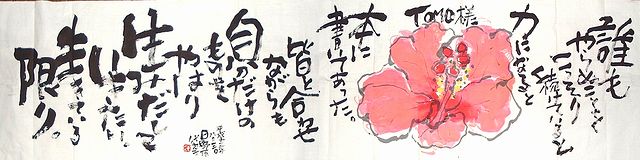 誰も
やらぬことを
こっそり
続けていると
力になると
TOMO様
本に
書いてあった。
皆と合わせ
ながらも
自分だけの
ものを
やはり
生みだして
いきたい
生きている
限り。